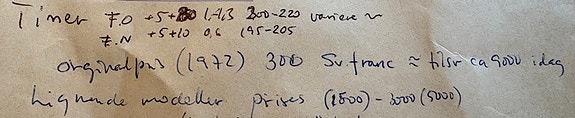 Timer F.O +5+30 1,4,3 200-220 variere
F.N +5+10 0,6 195-205
orginalpris (1972) 300 Sv.franc ≈ tilsv ca 9000 idag
lignende modeller prises (1500) - 3000 (5000)